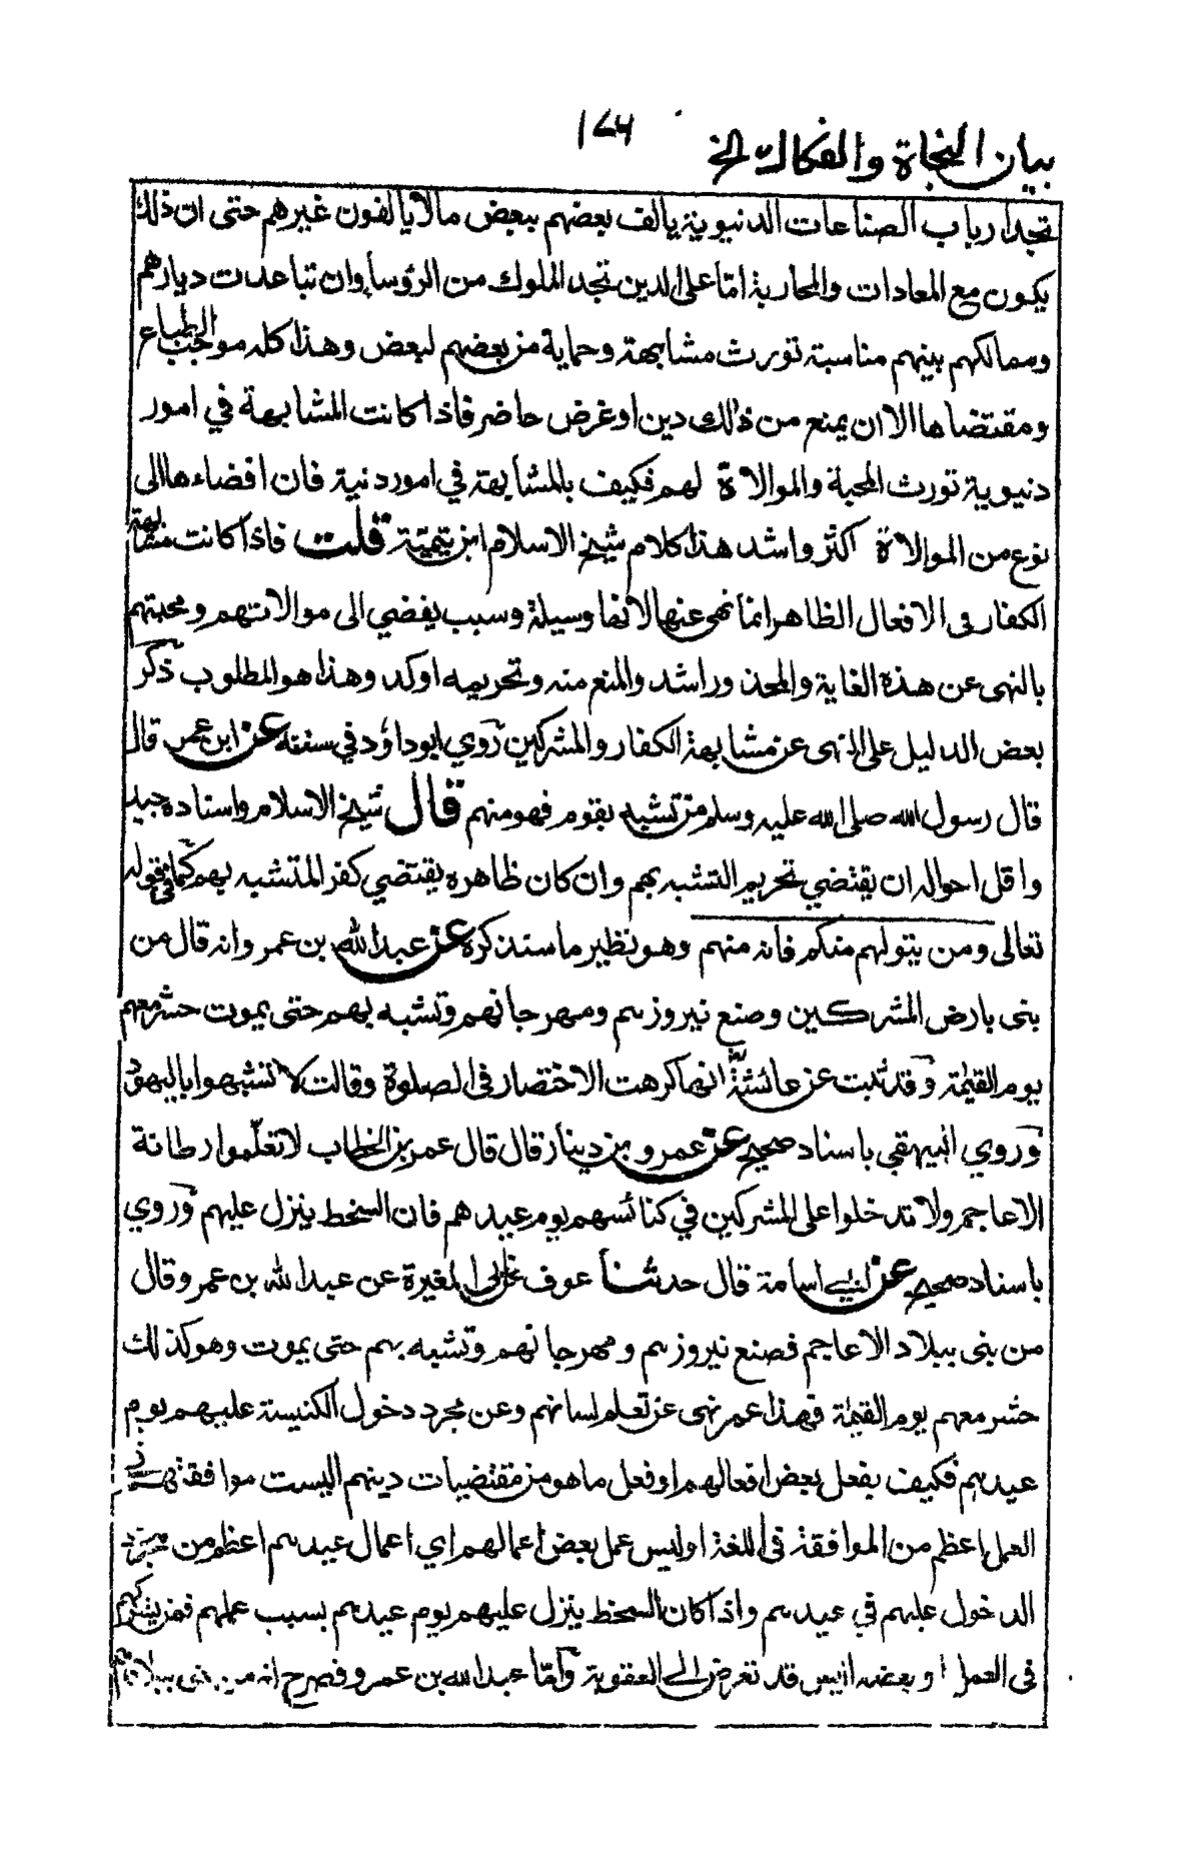 بيان النجاة والفكاك الخ
١٧٦
تجد ارباب الصناعات الدنيوية يالف بعضهم ببعض ما لا يالفون غيرهم حتى ان ذلك
يكون مع المعادات والمحاربة اما على الدين تجد الملوك من الرؤساء وان تباعدت ديارهم
وممالكهم بينهم مناسبة تورث مشابهة وحماية من بعضهم لبعض وهذا كله موجب الطباع
ومقتضاها الا ان يمنع من ذلك دين او غرض حاضر فاذا كانت المشابهة في امور
دنيوية تورث المحبة والموالاة لهم فكيف بالمشابهة في امور دنية فان افضاءها الى
نوع من الموالاة اكثر واشد هذا كلام شيخ الاسلام ابن تيمية قلت فاذا كانت مشابهة
الكفار فى الافعال الظاهر انما نهى عنها لانها وسيلة وسبب يفضي الى موالاتهم ومحبتهم
بالنهى عن هذه الغاية والمحذور اشد والمنع منه وتحريمه اوكد وهذا هو المطلوب ذكر
بعض الدليل على النهى عن مشابهة الكفار والمشركين روي ابوداؤد في سننه عن ابن عمر قال
قال رسول الله صلى الله عليه وسلم من تشبه بقوم فهو منهم قال شيخ الاسلام واسناده جيد
واقل احواله ان يقتضي تحريم التشبه بهم وان كان ظاهره يقتضي كفر المتشبه بهم كما فى قوله
تعالى ومن يتولهم منكم فانه منهم وهو نظير ما سنذكره عن عبد الله بن عمر وانه قال من
بنى بارض المشركين وصنع نيروزهم ومهرجانهم وتشبه بهم حتى يموت حشر معهم
يوم القيمة وقد ثبت عن عائشة انها كرهت الاختصار فى الصلوة وقالت لا تشبهوا باليهود
وروي البيهقي باسناد صحيح عن عمرو بن دينار قال قال عمر بن الخطاب لا تعلّموا رطانة
الاعاجم ولا تدخلوا على المشركين في كنائسهم يوم عيدهم فان السخط ينزل عليهم وروي
باسناد صحيح عن ابي اسامة قال حدثنا عوف عن ابي المغيرة عن عبد الله بن عمر وقال
من بنى ببلاد الاعاجم فصنع نيروزهم ومهرجانهم وتشبه بهم حتى يموت وهو كذلك
حشر معهم يوم القيمة فهذا عمر نهى عن تعلم لسانهم وعن مجرد دخول الكنيسة عليهم يوم
عيدهم فكيف بفعل بعض افعالهم او فعل ما هو من مقتضيات دينهم اليست موافقتهم فى
العمل اعظم من الموافقة فى اللغة اوليس عمل بعض اعمالهم اي اعمال عيدهم اعظم من مجرد
الدخول عليهم في عيدهم واذا كان السخط ينزل عليهم يوم عيدهم بسبب عملهم فمن يشركهم
فى العمل او بعضه اليس قد تعرض الى العقوبة وامّا عبد الله بن عمرو فصرح انه من بنى ببلادهم